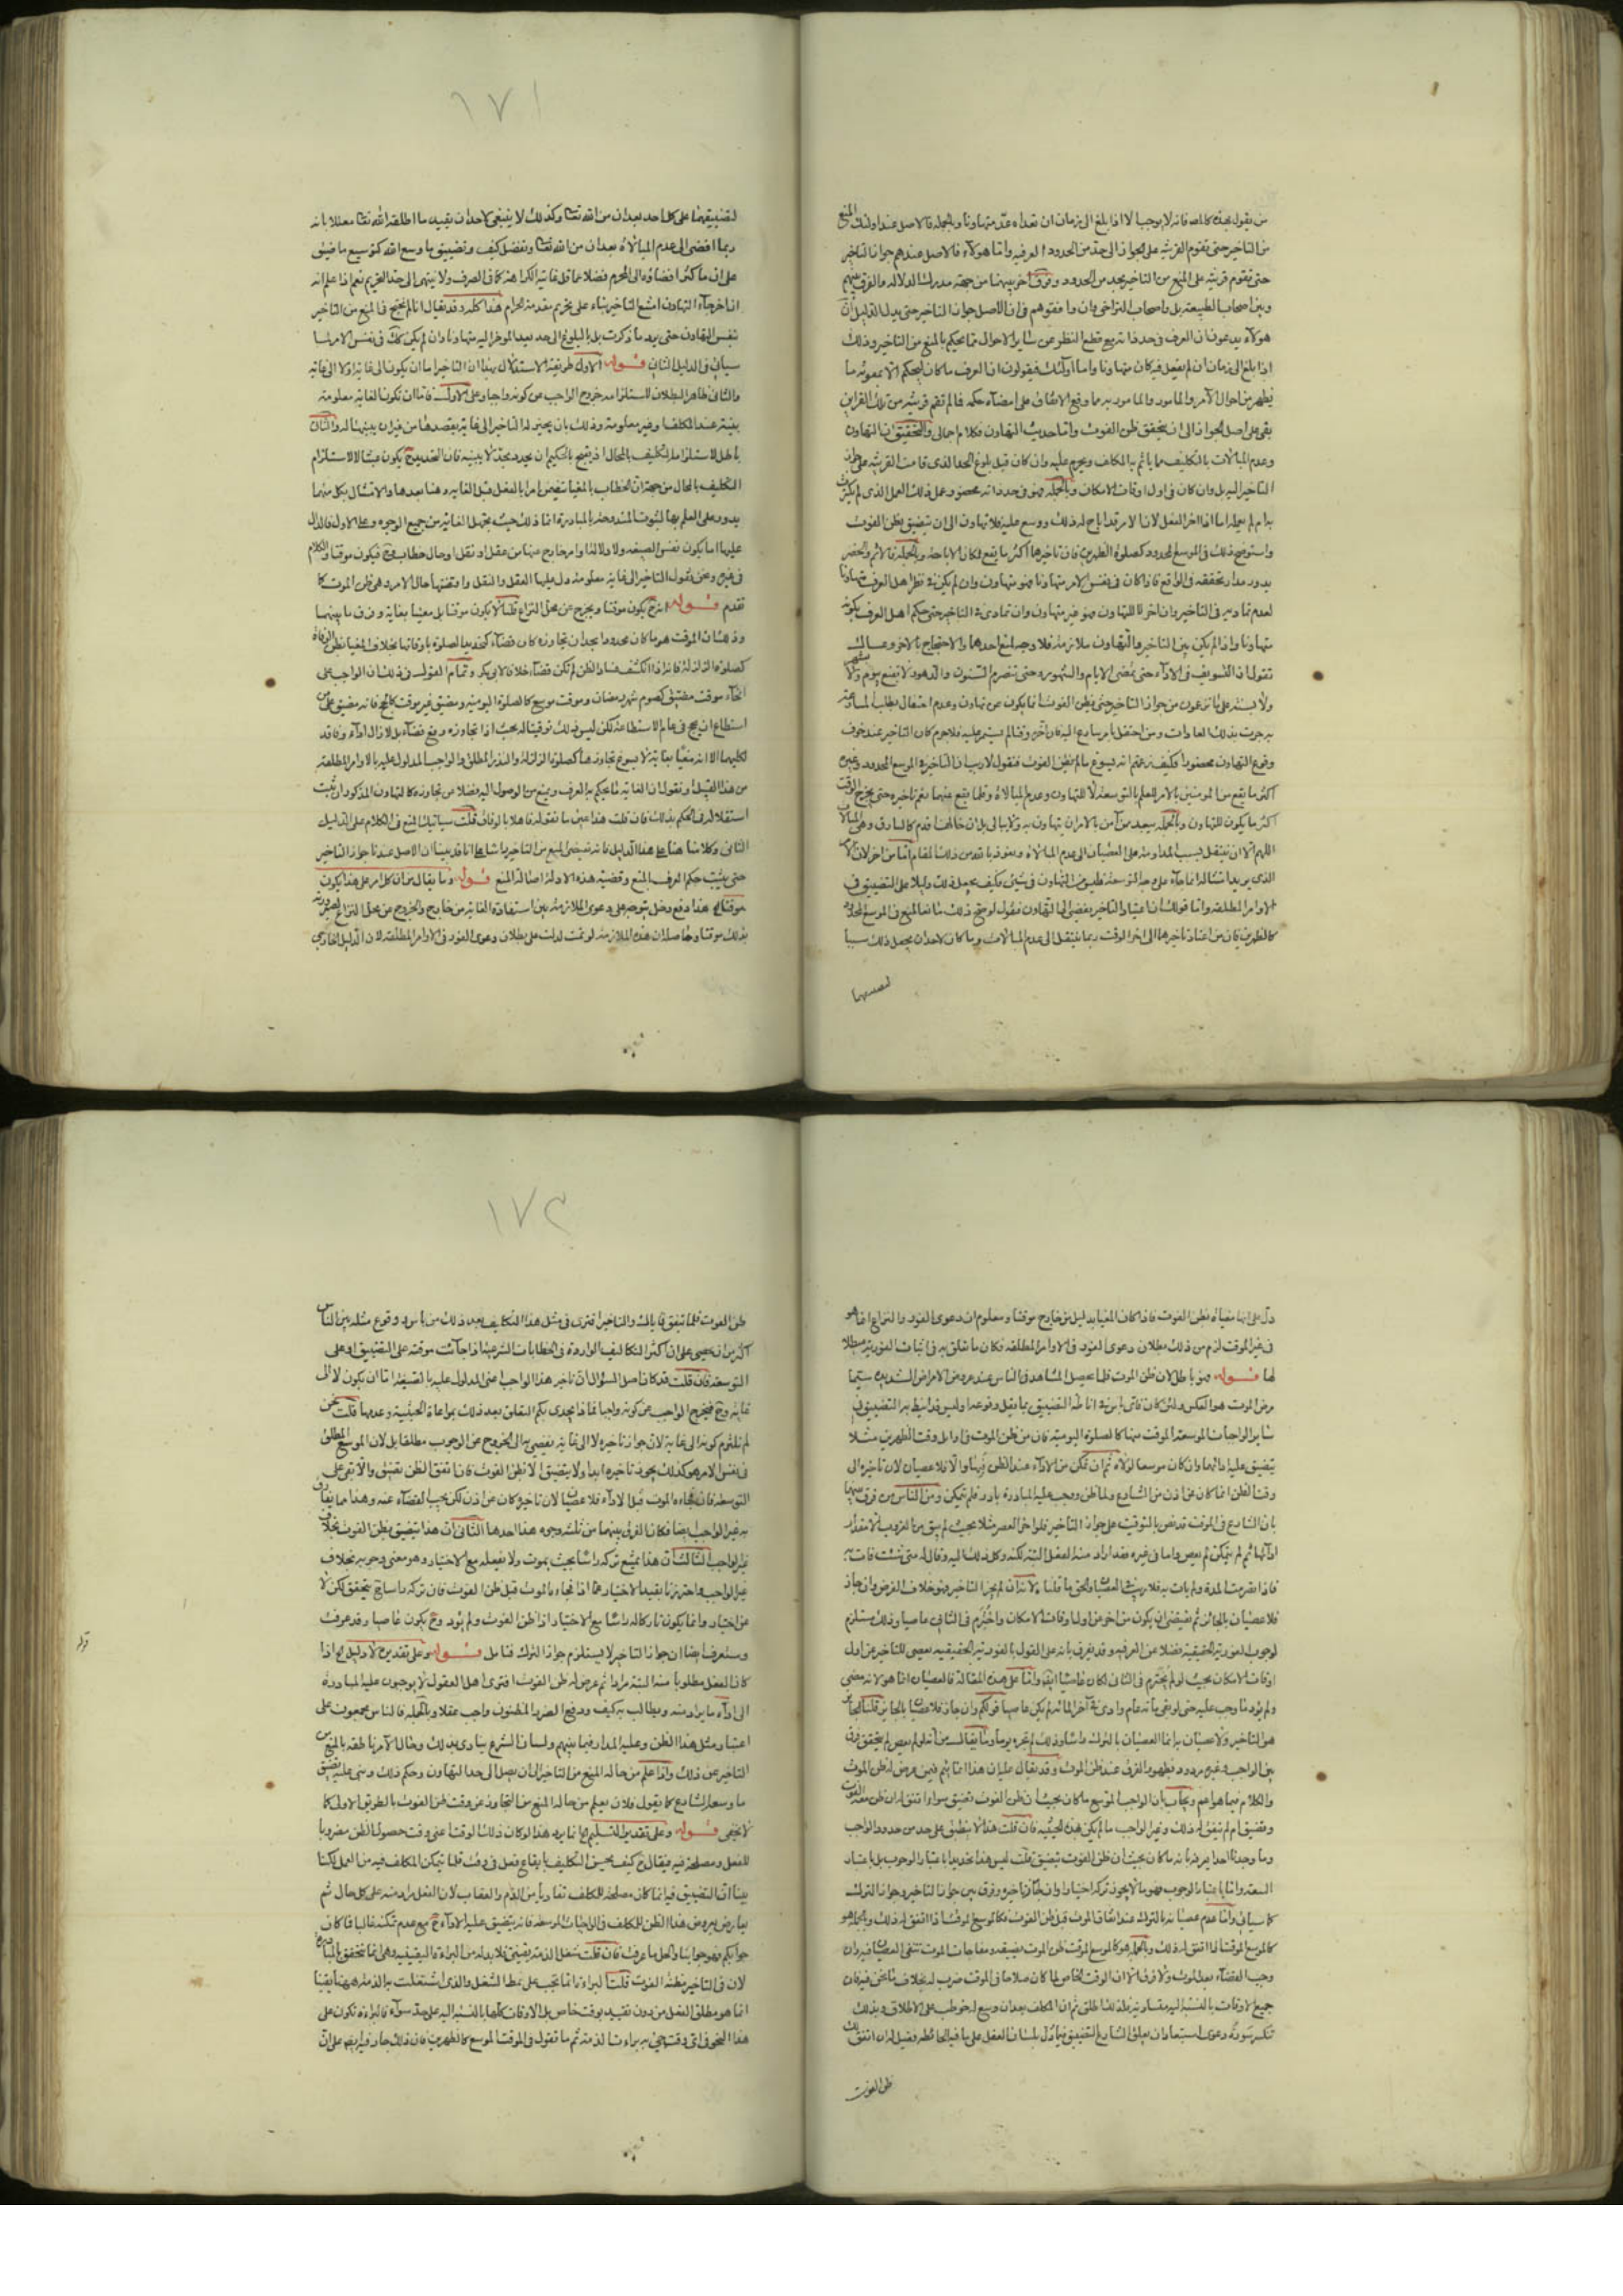 من يقول بهذه كالمص فانه لا يوجبها الا اذا بلغ الى زمان ان تعداه عد متهاونا وبالجملة فالاصل عند اولئك المنع
من التاخير حتى يقوم القرينه على الجواز الى حد من الحدود العرفيه واما هؤلاء فالاصل عندهم جواز التاخير
حتى تقوم قرينه على المنع من التاخير بحد من الحدود وفرق اخر بينهما من جهة مدرك الدلاله والفرق بينهم
وبين اصحاب الطبيعة بل واصحاب التراخي وان وافقوهم في ان الاصل جواز التاخير حتى يدل الدليل ان
هؤلاء يدعون ان العرف في حد ذاته مع قطع النظر عن ساير الاحوال مما يحكم بالمنع من التاخير وذلك
اذا بلغ الى زمان ان لم يفعل فيه كان متهاونا واما اولئك فيقولون ان العرف ما كان ليحكم الا بمعونه ما
يظهر من احوال الآمر والمامور والمامور به مما وقع الاتفاق على امضاء حكمه فما لم تقم قرينه من تلك القراين
بقي على اصل الجواز الى ان يتحقق ظن الفوت واما حديث التهاون فكلام اجمالي والتحقيق ان التهاون
وعدم المبالات بالتكليف مما ياثم به المكلف ويحرم عليه وان كان قبل بلوغ الحد الذى قامت القرينه على جواز
التاخير اليه بل وان كان في اول اوقات الامكان وبالجملة فهو في حد ذاته محصور وعمل ذلك العمل الذى لم يكترث
به ام لم يعمله اما اذا اخر الفعل لان الامر قد اباح له ذلك ووسع عليه فلا تهاون الى ان تضيق بظن الفوت
واستوضح ذلك في الموسع المحدود كصلوة الظهرين فان تاخيرها اكثر ما يقع لمكان الاباحة وبالجملة فالاثم والحضر
يدور مدار تحققه في الواقع فاذا كان في نفس الامر متهاونا فهو متهاون وان لم يكن في نظر اهل العرف متهاونا
لعدم تماديه في التاخير وان اخر لا للتهاون فهو غير متهاون وان تمادى في التاخير حتى حكم اهل العرف بكونه
متهاونا واذ لم يكن بين التاخير والتهاون ملازمة فلا وجه لمنع احدهما والاحتجاج بالاخر
نقول ان التسويف في الاداء حتى تمضى الايام والشهور وحتى تنصرم السنون والدهور
ولا يستند على ما تدعون من جواز التاخير حتى يظن الفوت انما يكون عن تهاون وعدم احتفال بطلب المسارعة
به جرت بذلك العادات ومن احتفل بامر سارع اليه فان اخر وقتا لم يستمر عليه فلا جرم كان التاخير عند خوف
وقوع التهاون محصورا فكيف زعمتم انه يسوغ ما لم يظن الفوت فنقول لا ريب ان التاخير في الموسع المحدود وغيره
اكثر ما يقع من المومنين بالامر للعلم بالتوسعة لا للتهاون وعدم المبالاة وقلما يقع عنهما نعم تاخيره حتى يخرج الوقت
اكثر ما يكون للتهاون وبالجملة يبعد ممن آمن بالامر ان يتهاون به ولا يبالى
اللهم الا ان ينتقل بسبب المداومة على العصيان الى عدم المبالاة ونعوذ بالله من ذلك المقام اما من اخر لان
الذى يريد امتثاله انما جآء على وجه التوسعة فليس من التهاون في شيئ فكيف يجعل ذلك دليلا على التضييق في
الاوامر المطلقه واما قولك ان اعتياد التاخير يفضي الى التهاون فنقول لو صح ذلك مانعا لمنع في الموسع المحدود
كالظهرين فان من اعتاد تاخيرها الى اخر الوقت ربما ينتقل الى عدم المبالات وما كان لاحد ان يجعل ذلك سببا
لتضييقهما
١٧١
لتضييقهما على كل احد بعد اذن من الله تعا وكذلك لا ينبغى لاحد ان يقيد ما اطلقه الله تعا معللا بانه
ربما افضى الى عدم المبالاة بعد اذن من الله تعا وتفضل كيف وتضييق ما وسع الله كتوسيع ما ضيق
على ان ما كثر افضاؤه الى المحرم فضلا عما قل غايته الكراهة كما في الصرف ولا ينتهى الى حد التحريم نعم اذا علم انه
ان اخر جآء التهاون امتنع التاخير بناء على تحريم مقدمة الحرام هذا كله وقد يقال انا لم نحتج في المنع من التاخير
بنفس التهاون حتى يرد ما ذكرت بل بالبلوغ الى حد يعد الموخر اليه متهاونا وان لم يكن كك في نفس الامر لما
سياتى في الدليل الثانى قوله الاول طريقة الاستدلال بهذا ان التاخير اما ان يكون الى غاية اولا الى غاية
والثانى ظاهر البطلان لاستلزامه خروج الواجب عن كونه واجبا وعلى الاول فاما ان تكون الغاية معلومة
بينة عند المكلف او غير معلومة وذلك بان يجيز له التاخير الى غاية يقصدها من غير ان يبينها له والثانى
باطل لاستلزامه التكليف بالمحال اذ يقبح بالحكيم ان يحدد بحد لا يبينه فان التحديد ح يكون عبثا لا لاستلزام
التكليف بالمحال من جهة ان الخطاب بالمغيا يتضمن امرا بالفعل قبل الغايه ونهيا بعدها والامتثال بكل منهما
يدور على العلم بها لثبوت المندوحة بالمبادرة انما ذلك حيث تجهل الغاية من جميع الوجوه وعلى الاول فالدال
عليها اما يكون نفس الصيغه ولا دلالة لها او امر خارج عنها من عقل او نقل او حال خطاب وح فيكون موقتا والكلام
في غيره ونحن نقول التاخير الى غاية معلومة دل عليها العقل والنقل واقتضتها حال الامر وهى ظن الموت كما
تقدم قوله اذ ح يكون موقتا ويخرج عن محل النزاع قلنا لا يكون موقتا بل مغيا بغاية وفرق ما بينهما
وذلك ان الموقت هو ما كان محدودا بحد ان تجاوزه كان قضآء كتحديد الصلوة باوقاتها بخلاف المغيا بظن الوفاة
كصلوة الزلزلة فانه اذا انكشف فساد الظن لم تكن قضآء خلافا لابى بكر وتمام القول في ذلك ان الواجب على
انحآء موقت مضيق كصوم شهر رمضان وموقت موسع كالصلوة اليومية ومضيق غير موقت كالحج فانه مضيق على من
استطاع ان يحج في عام الاستطاعة لكن ليس ذلك توقيتا له بحيث اذا تجاوزه وقع قضآء بل لا زال اداء وفاقد
لكليهما الا انه مغيا بغاية لا يسوغ تجاوزها كصلوة الزلزلة والنذر المطلق والواجب المدلول عليه بالاوامر المطلقة
من هذا القبيل ونقول ان الغاية مما يحكم به العرف ويمنع من الوصول اليه فضلا عن تجاوزه كالتهاون المذكور ان ثبت
استقلاله في الحكم بذلك فان قلت هذا عين ما نقوله فاهلا بالوفاق قلت سياتيك المنع في الكلام على الدليل
الثانى وكلامنا هنا على هذا الدليل فانه يقتضى المنع من التاخير راسا على انا قد بينا ان الاصل عندنا جواز التاخير
حتى يثبت حكم العرف بالمنع وقضية هذه الادلة اصالة المنع قوله وما يقال من ان كل امر على هذا يكون
موقتا الخ هذا دفع دخل يتوجه على دعوى الملازمة بين استفادة الغاية من خارج والخروج من محل النزاع لصيرورته
بذلك موقتا وحاصله ان هذه الملازمة لو تمت لدلت على بطلان دعوى الفور في الاوامر المطلقة لان الدليل الخارجى
دل على انها مغياة بظن الفوت فاذا كان المغيا بدليل من خارج موقتا ومعلوم ان دعوى الفور والنزاع انما هو
في غير الموقت لزم من ذلك بطلان دعوى الفور في الاوامر المطلقه فكان ما تعلق به في اثبات الفورية مبطلا
لها قوله فهو باطل لان ظن الموت قلما يحصل المشاهد في الناس عند عروض الامراض الشديده سيما
مرض الموت هو العكس
ساير الواجبات الموسعة الموقت منها كالصلوة اليومية فان من ظن الموت في اوايل وقت الظهرين مثلا
يتضيق عليه ادائهما وان كان موسعا لولاه ثم ان تمكن من الاداء عند الظن فبها والا فلا عصيان لان تاخيره الى
وقت الظن انما كان عن اذن من الشارع ولما ظن ووجب عليه المبادرة بادر فلم يتمكن ومن الناس من فرق بينهما
بان الشارع في الموقت قد نص بالتوقيت على جواز التاخير فلو اخر العصر مثلا بحيث لم يبق من الغروب الا مقدار
ادائها ثم لم يتمكن لم يعص واما في غيره فقد اراد منه الفعل البتة لكنه وكل ذلك اليه وقال له متى شئت فات به
فاذا تصرمت المدة ولم يات به فلا ريب في العصيان والحق ما قلناه لانه ان لم يجز التاخير فهو خلاف الفرض وان جاز
فلا عصيان بالجائز ثم يقتضى ان يكون من اخر عن اول اوقات الامكان واخترم في الثانى عاصيا وذلك يستلزم
لوجوب الفورية الحقيقية فضلا عن العرفيه وقد يفرق بانه على القول بالفورية الحقيقيه يعصى للتاخير عن اول
اوقات الامكان بحيث لو لم يخترم في الثانى لكان عاصيا ايضا واما على هذه المقالة فالعصيان انما هو لانه مضى
ولم يؤد ما وجب عليه حتى لو بقى مائة عام وادى في آخر المائة لم يكن عاصيا قولكم وان جاز فلا عصيان بالجايز قلنا الجايز
هو التاخير ولا عصيان به انما العصيان بالترك راسا وذلك لم يجزه يوما وما يقال من انه لو لم يعص لم يتحقق فرق
بين الواجب وغيره مردود بظهور الفرق عند ظن الموت وقد يقال عليه ان هذا انما يتم فيمن عرض له ظن الموت
والكلام فيما هو اعم ويجاب بان الواجب الموسع ما كان بحيث ان ظن الفوت تضيق سواء اتفق له ان ظن معه الفوت
وتضيق ام لم يتفق له ذلك وغير الواجب ما لم يكن بهذه الحيثيه فان قلت هذا لا ينطبق على حد من حدود الواجب
وما وجدنا احدا يعرفه بانه ما كان بحيث ان ظن الفوت تضيق قلت ليس هذا تحديدا باعتبار الوجوب بل باعتبار
السعة واما باعتبار الوجوب فهو ما لا يجوز تركه اختيارا وان جاز تاخيره وفرق بين جواز التاخير وجواز الترك
كما سياتى واما عدم عصيانه بالترك عند اتفاق الموت قبل ظن الفوت فكالموسع الموقت اذا اتفق له ذلك وبالجملة هو
كالموسع الموقت اذا اتفق له ذلك وبالجملة هو كالموسع الموقت ظن الموت يضيقه ومفاجات الموت تنفى العصيان فيه وان
وجب القضآء بعد الموت ولا فرق الا ان الوقت الخاص لما كان صلاحا في الموقت ضرب له بخلاف ما نحن فيه فان
جميع الاوقات بالنسبة اليه متساوية فلذلك اطلق ثم ان المكلف بعد ان وسع له خوطب على الاطلاق وبذلك
تنكسر سورة دعوى استبعاد ان يعلق الشارع التضييق
ظن الفوت
١٧٢
ظن الفوت فلما تتفق
اكثر من ان يحصى على ان اكثر التكاليف الواردة في الخطابات الشرعية انما جآءت موقته على التضييق او على
التوسعة فان قلت قد كان اصل السؤال ان تاخير هذا الواجب اعنى المدلول عليه بالصيغة اما ان يكون لا الى
غاية وح فيخرج الواجب عن كونه واجبا فماذا يجدى بكم التعلق بعد ذلك بمراعاة الحيثية وعدمها قلت نحن
لم نلتزم كونه الى غاية لان جواز تاخيره لا الى غاية يفضى به الى الخروج عن الوجوب مطلقا بل لان الموسع المطلق
في نفس الامر هو كذلك يجوز تاخيره ابدا ولا يتضيق الا بظن الفوت فان اتفق الظن تضيق والا بقى على
التوسعة فان فاجاه الموت قبل الاداء فلا عصيان لان تاخيره كان عن اذن لكن يجب القضآء عنه وهذا مما يفارق
به غير الواجب ايضا فكان الفرق بينهما من ثلثة وجوه هذا احدها الثانى ان هذا يتضيق بظن الفوت بخلاف
غير الواجب الثالث ان هذا يمتنع تركه راسا بحيث يموت ولا يفعله مع الاختيار وهو معنى وجوبه بخلاف
غير الواجب واحترزنا بقيد الاختيار عما اذا فاجاه الموت قبل ظن الفوت فان تركه راسا ح يتحقق لكن لا
عن اختيار وانما يكون تاركا له راسا مع الاختيار اذا ظن الفوت ولم يؤد وح يكون عاصيا وقد عرفت
وستعرف ايضا ان جواز التاخير لا يستلزم جواز الترك فتامل قوله وعلى تقديره لا دليل الخ اذا
كان الفعل مطلوبا منه البتة مرادا ثم عرض له ظن الفوت افترى اهل العقول لا يوجبون عليه المبادرة
الى اداء ما يراد منه ويطالب به كيف ودفع الضرر المظنون واجب عقلا وبالجملة فالناس مجمعون على
اعتبار مثل هذا الظن وعليه المدار فيما بينهم ولسان الشرع ينادى بذلك وحال الآمر ناطقة بالمنع من
التاخير عن ذلك واذا علم من حاله المنع من التاخير الى ان يصل الى حد التهاون وحكم ذلك وبنى عليه تضييق
ما وسعه الشارع كما يقول فلان يعلم من حاله المنع من التجاوز عن وقت ظن الفوت بالطريق الاولى كما
لا يخفى قوله وعلى تقدير التسليم الخ انما يرد هذا لو كان ذلك الوقت اعنى وقت حصول الظن مضروبا
للفعل ومصلحة فيه فيقال ح كيف يحسن التكليف بايقاع فعل في وقت قلما يتمكن المكلف فيه من العمل لكنا
بينا ان التضييق فيه انما كان مصلحة للمكلف تفاديا من الذم والعقاب لان الفعل مراد منه على كل حال ثم
يعارض بعروض هذا الظن للمكلف في الواجبات الموسعة فانه يتضيق عليه الاداء ح مع عدم تمكنه غالبا فما كان
جوابكم فهو جوابنا والحل ما عرفت فان قلت شغل الذمة يقينى فلا بد له من البراءة اليقينيه وهى انما تتحقق بالمبادرة
لان في التاخير مظنة الفوت قلت البراءة انما تجب على نمط الشغل والذى اشتغلت به الذمة ههنا يقينا
انما هو مطلق الفعل من دون تقييد بوقت خاص بل الاوقات كلها بالنسبة اليه على حد سوآء فالبراءة تكون على
هذا النحو ففى اى وقت جيئ به براءت الذمة ثم ما تقول في الموقت الموسع كالظهرين فان ذلك جار فيه بعينه على ان
قوله